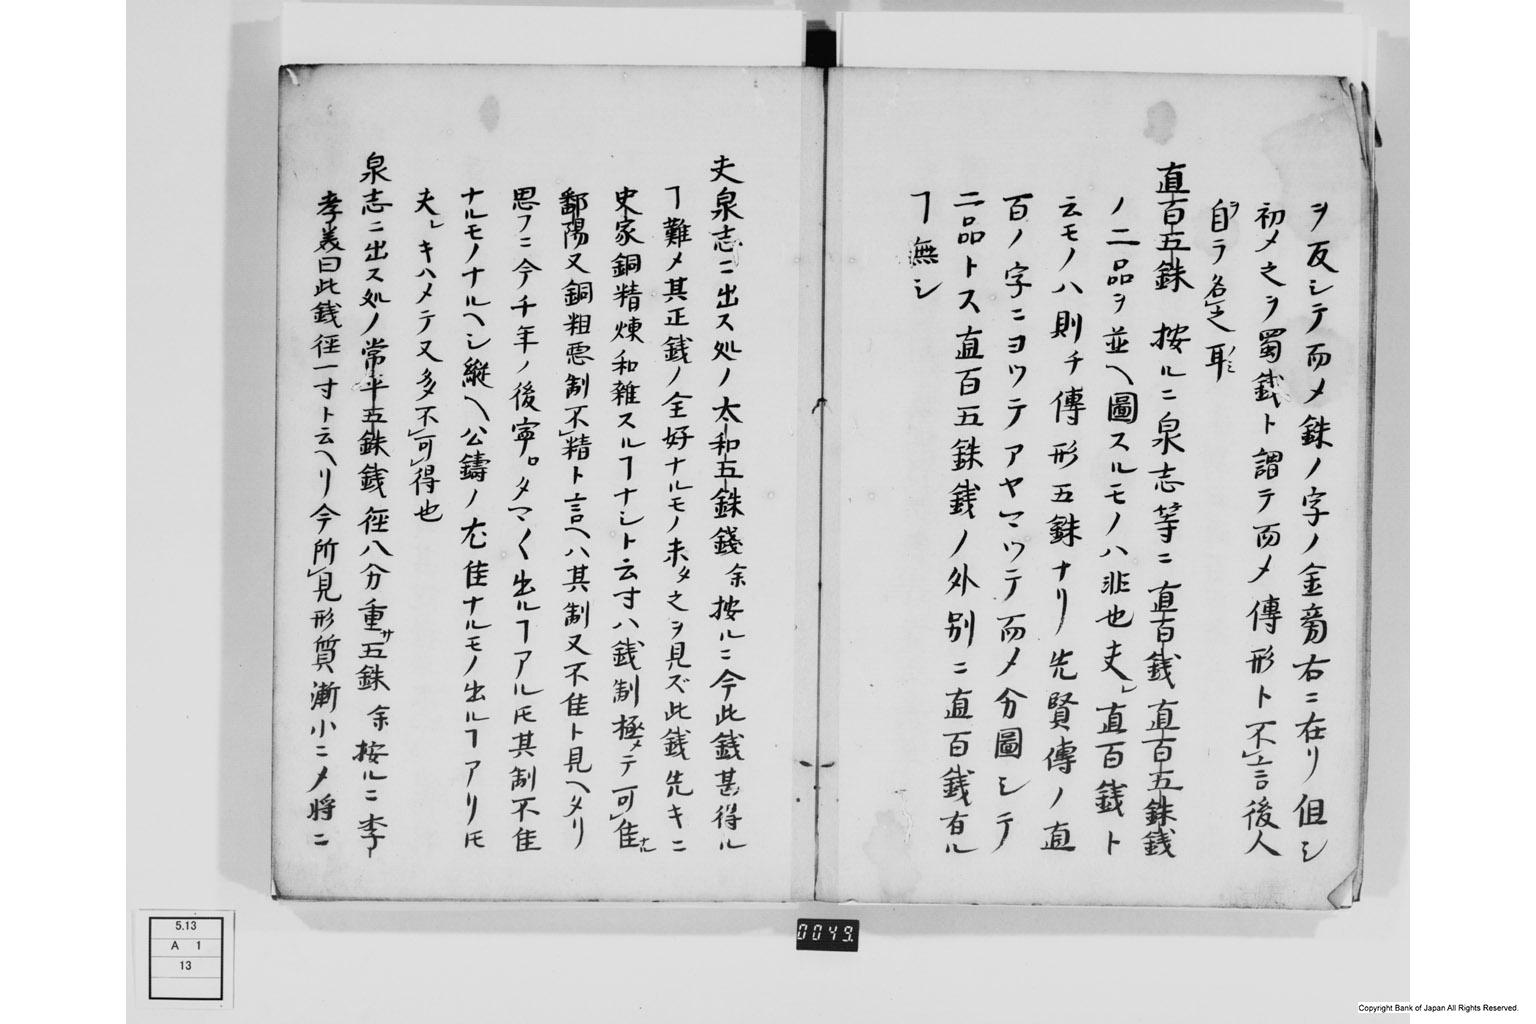 ヲ反シテ而メ銖ノ字ノ金旁右ニ在リ但シ
初メ之ヲ蜀銭ト謂テ而メ傳形ト不言後人
自ラ名之耳
直百五銖 按ルニ泉志等ニ直百銭直百五銖銭
ノ二品ヲ並ヘ圖スルモノハ非也夫レ直百銭ト
云モノハ則チ傳形五銖ナリ先賢傳ノ直
百ノ字ニヨツテアヤマツテ而メ分圖シテ
二品トス直百五銖銭ノ外別ニ直百銭有ル
ヿ無シ
夫泉志ニ出ス処ノ太和五銖錢 余按ルニ今此銭甚得ル
ヿ難メ其正銭ノ全好ナルモノ未タ之ヲ見ズ此銭先キニ
史家銅精煉和雜スルヿナシト云寸ハ銭制極メテ可佳ナル
鄱陽又銅粗悪制不精ト言ヘハ其制又不佳ト見ヘタリ
思フニ今千年ノ後寧ロタマ〱出ルヿアルモ其制不佳
ナルモノナルヘシ縦ヘ公鑄ノ尤佳ナルモノ出ルヿアリモ
夫レキハメテ又多不可得也
泉志ニ出ス処ノ常平五銖銭徑八分重サ五銖 余按ルニ李
孝美曰此銭徑一寸ト云ヘリ今所見形質漸小ニメ將ニ
0049.
5.13
A 1
13
Copyright Bank of Japan All Rights Reserved.